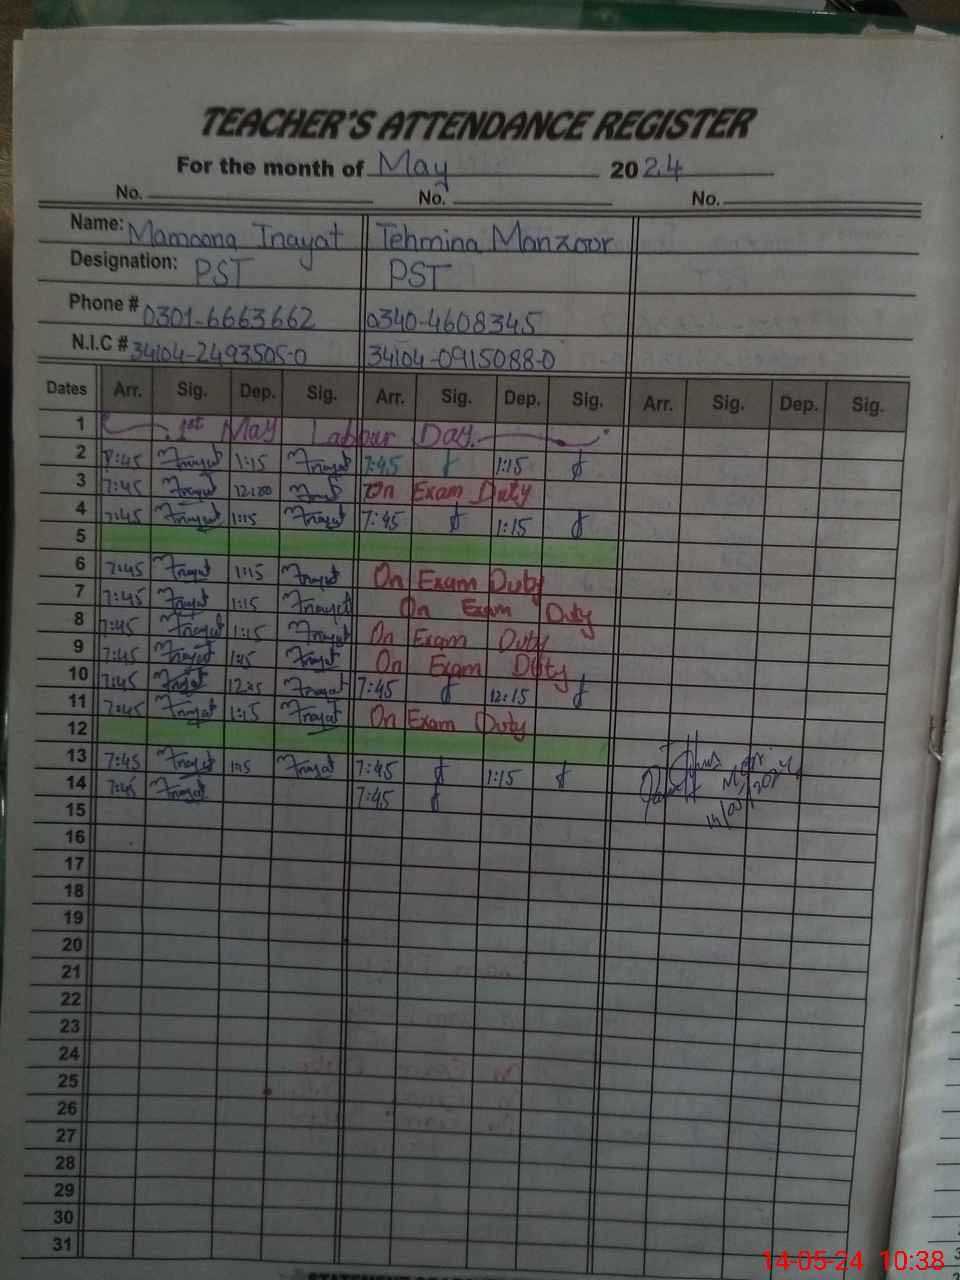 TEACHER'S ATTENDANCE REGISTER
For the month of May 2024
No. No. No.
Name: Mamoona Inayat Tehmina Manzoor
Designation: PST PST
Phone # 0301-6663662 0340-4608345
N.I.C # 34104-2493505-0 34104-0915088-0
Dates Arr. Sig. Dep. Sig. Arr. Sig. Dep. Sig. Arr. Sig. Dep. Sig.
1 1st May Labour Day
2 Inayat 1:15 Inayat 7:45 1:15
3 7:45 Inayat On Exam Duty
4 7:45 Inayat 1:15 Inayat 7:45 1:15
5
6 7:45 Inayat 1:15 Inayat On Exam Duty
7 7:45 Inayat 1:15 Inayat On Exam Duty
8 7:45 Inayat 1:15 Inayat On Exam Duty
9 7:45 Inayat Inayat On Exam Duty
10 7:45 Inayat Inayat 7:45 12:15
11 7:45 Inayat 1:15 Inayat On Exam Duty
12
13 7:45 Inayat Inayat 7:45 1:15
14 7:45 Inayat 7:45
15
16
17
18
19
20
21
22
23
24
25
26
27
28
29
30
31
14-05-24 10:38